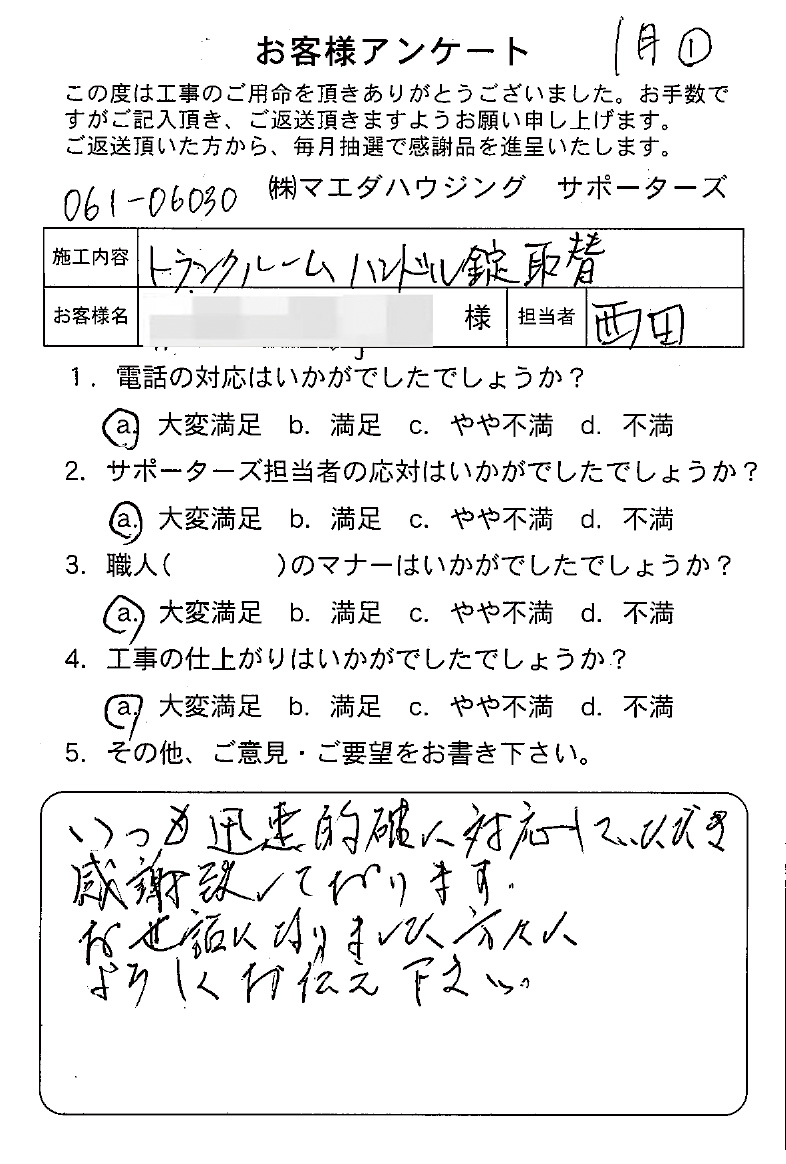 お客様アンケート 1月①
この度は工事のご用命を頂きありがとうございました。お手数で
すがご記入頂き、ご返送頂きますようお願い申し上げます。
ご返送頂いた方から、毎月抽選で感謝品を進呈いたします。
061-06030 ㈱マエダハウジング サポーターズ
施工内容 トランクルーム ハンドル錠取替
お客様名 様 担当者 西田
1. 電話の対応はいかがでしたでしょうか？
a. 大変満足 b. 満足 c. やや不満 d. 不満
2. サポーターズ担当者の応対はいかがでしたでしょうか？
a. 大変満足 b. 満足 c. やや不満 d. 不満
3. 職人( )のマナーはいかがでしたでしょうか？
a. 大変満足 b. 満足 c. やや不満 d. 不満
4. 工事の仕上がりはいかがでしたでしょうか？
a. 大変満足 b. 満足 c. やや不満 d. 不満
5. その他、ご意見・ご要望をお書き下さい。
いつも迅速的確に対応していただき
感謝致しております。
お世話になりました方々に
よろしくお伝え下さい。